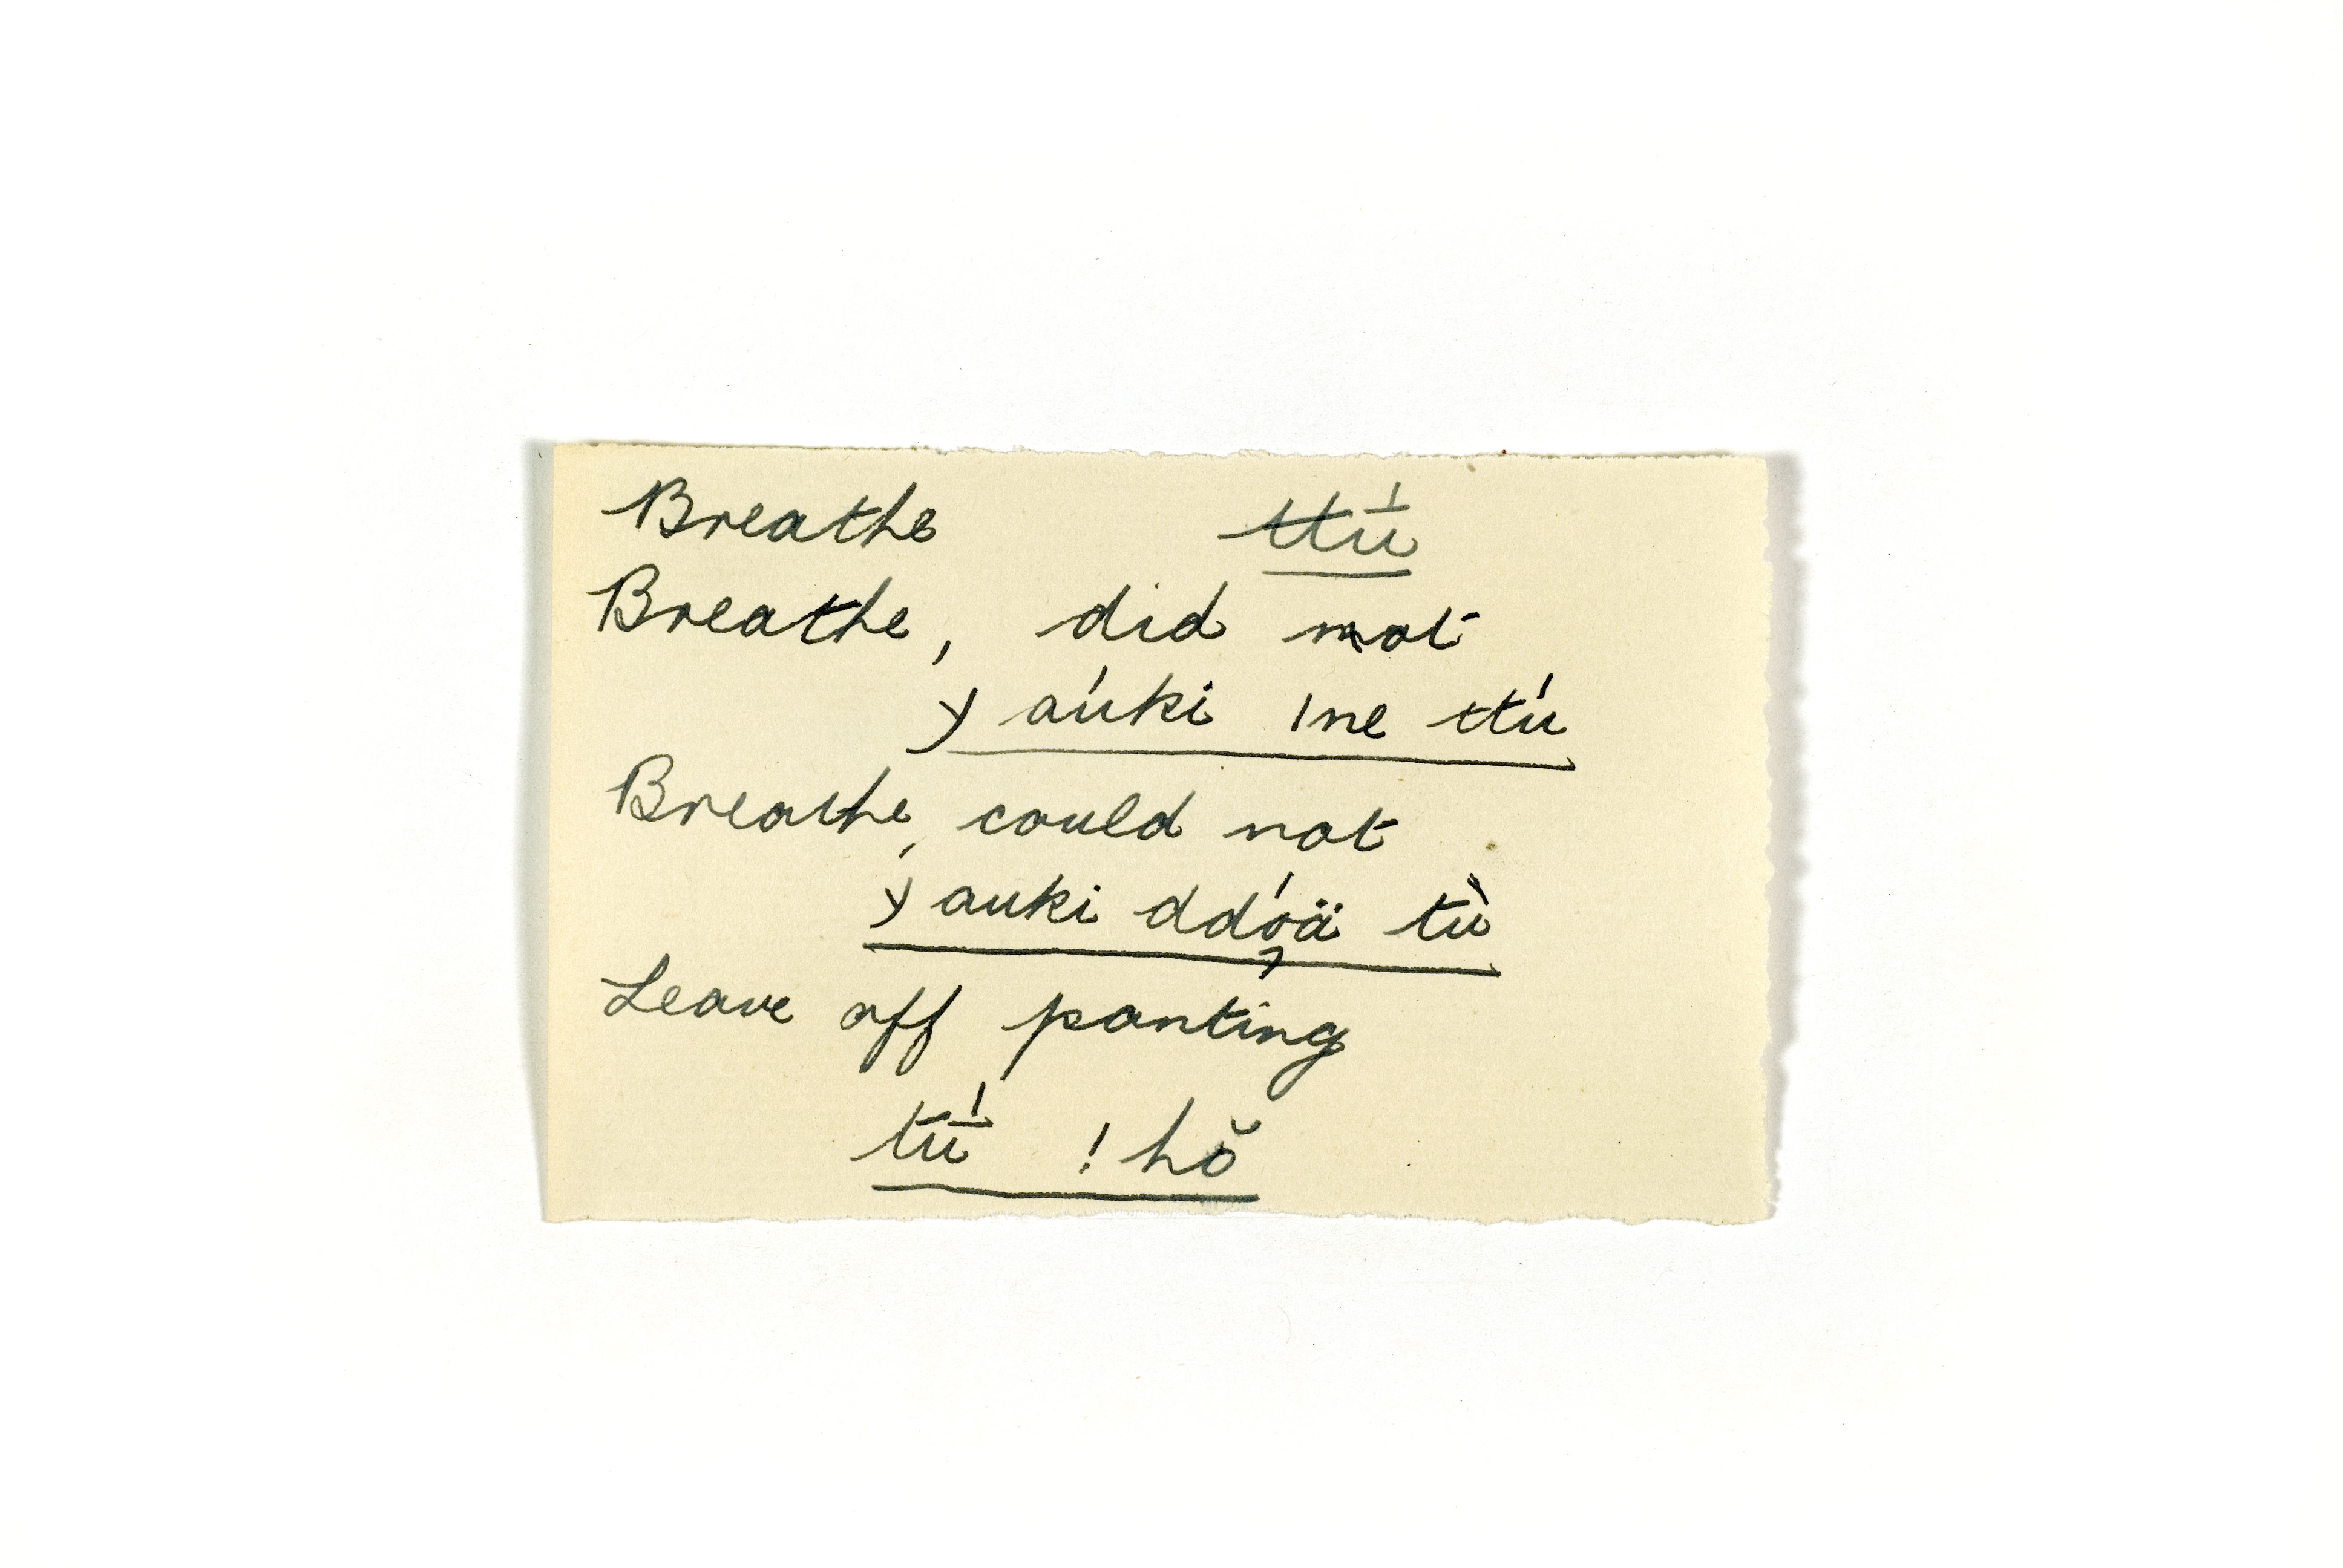 Breathe ttū́
Breathe, did not
ɣ aúki |ne ttú
Breathe, could not
ɣ auki ddó̜ä tù
Leave off panting
tū́ !hŏ